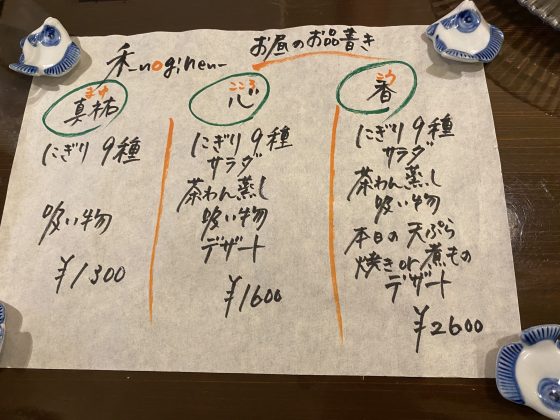 禾-noginen-
お昼のお品書き
まゆ
真祐
にぎり9種
吸い物
¥1300
こころ
心
にぎり9種
サラダ
茶わん蒸し
吸い物
デザート
¥1600
こう
香
にぎり9種
サラダ
茶わん蒸し
吸い物
本日の天ぷら
焼きor煮もの
デザート
¥2600